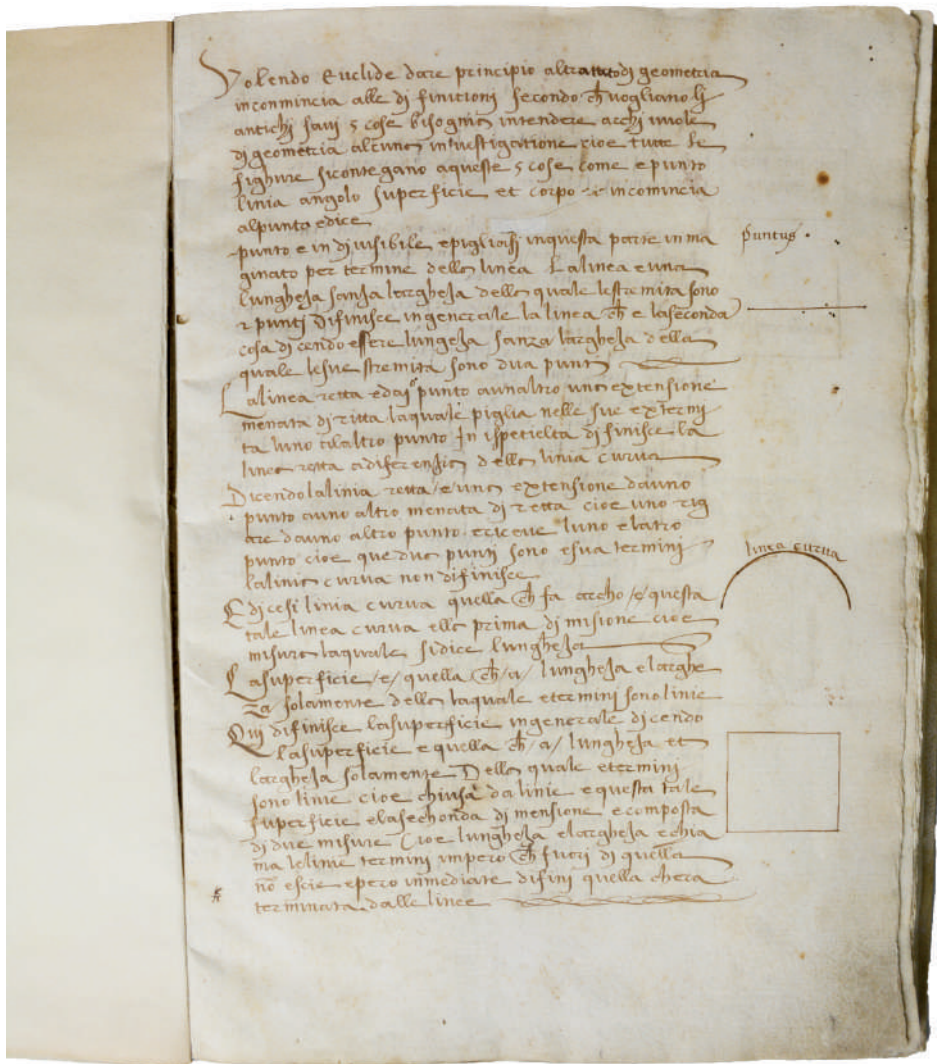 Volendo Euclide dare principio al trattato di geometria
inconmincia alle difinitioni secondo ch vogliano li
antichi savi 5 cose bisognia intendere a chi vuole
di geometria alcuna investigatione cioe tutte le
fighure si contegano a queste 5 cose come e punto
linia angolo superficie et corpo & incomincia
al punto e dice
punto e indivisibile e pigliasi in questa parte inma
ginato per termine della linea La linea e una
lungheza sanza largheza della quale lestremita sono
2 punti Difinisce in generale la linea ch e la seconda
cosa dicendo essere lungeza sanza largheza della
quale le sue stremita sono dua punti
La linea retta e da i° punto a un altro una extensione
menata diritta la quale piglia nelle sue extermi
ta luno e laltro punto In ispetielta difinisce la
linea retta a diferenzia della linia curva
Dicendo la linia retta /e/ una extensione dauno
punto auno altro menata diretta cioe uno rig
are dauno altro punto e riceve luno e latro
punto cioe que dua punti sono e sua termini
la linia curva non difinisce
E dicesi linia curva quella ch fa archo /e/ questa
tale linea curva ella prima dimisione cioe
misura la quale si dice lungheza
La superficie /e/ quella ch /a/ lungheza e larghe
za solamente della la quale e termini sono linie
Qui difinisce la superficie in generale dicendo
La superficie e quella ch /a/ lungheza et
largheza solamente Della quale e termini
sono linie cioe chiusa da linie e questa tale
superficie e la sechonda dimensione e composta
di due misure Cioe lungheza e largheza e chia
ma le linie termini impero ch fuori di quella
nō escie e pero inmediate difini quella chera
terminata dalle linee
puntus
linea curva